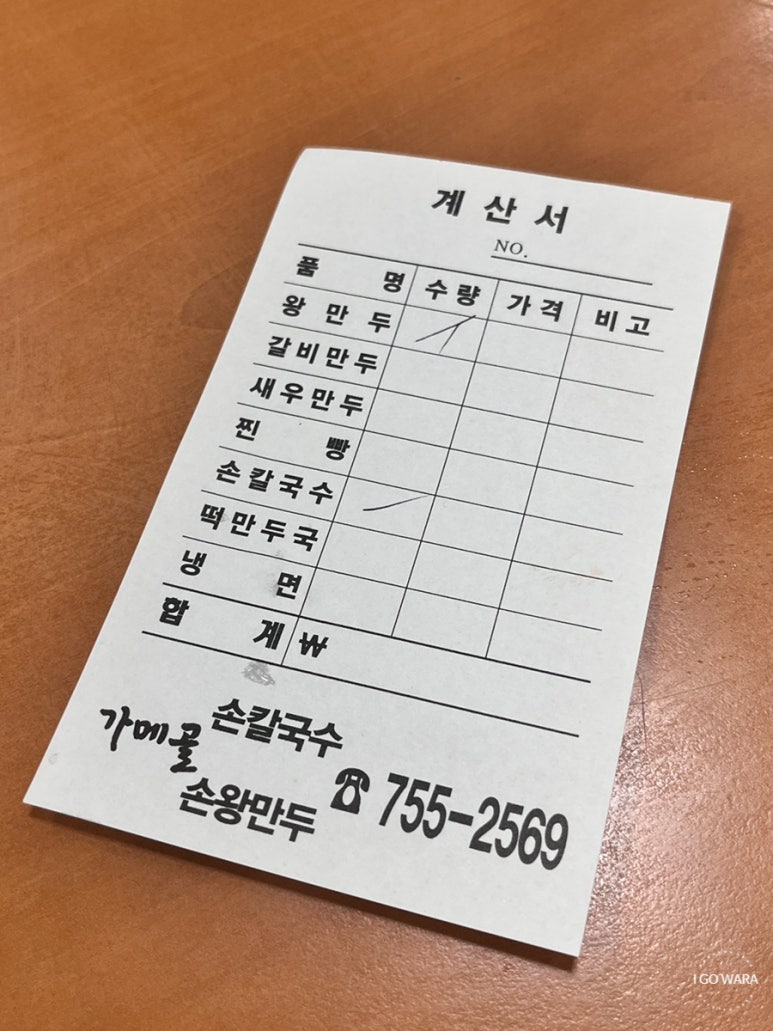 계산서
NO.
품명 수량 가격 비고
왕만두
갈비만두
새우만두
찐빵
손칼국수
떡만두국
냉면
합계 ₩
가메골 손칼국수
손왕만두 ☎ 755-2569
I GO WARA